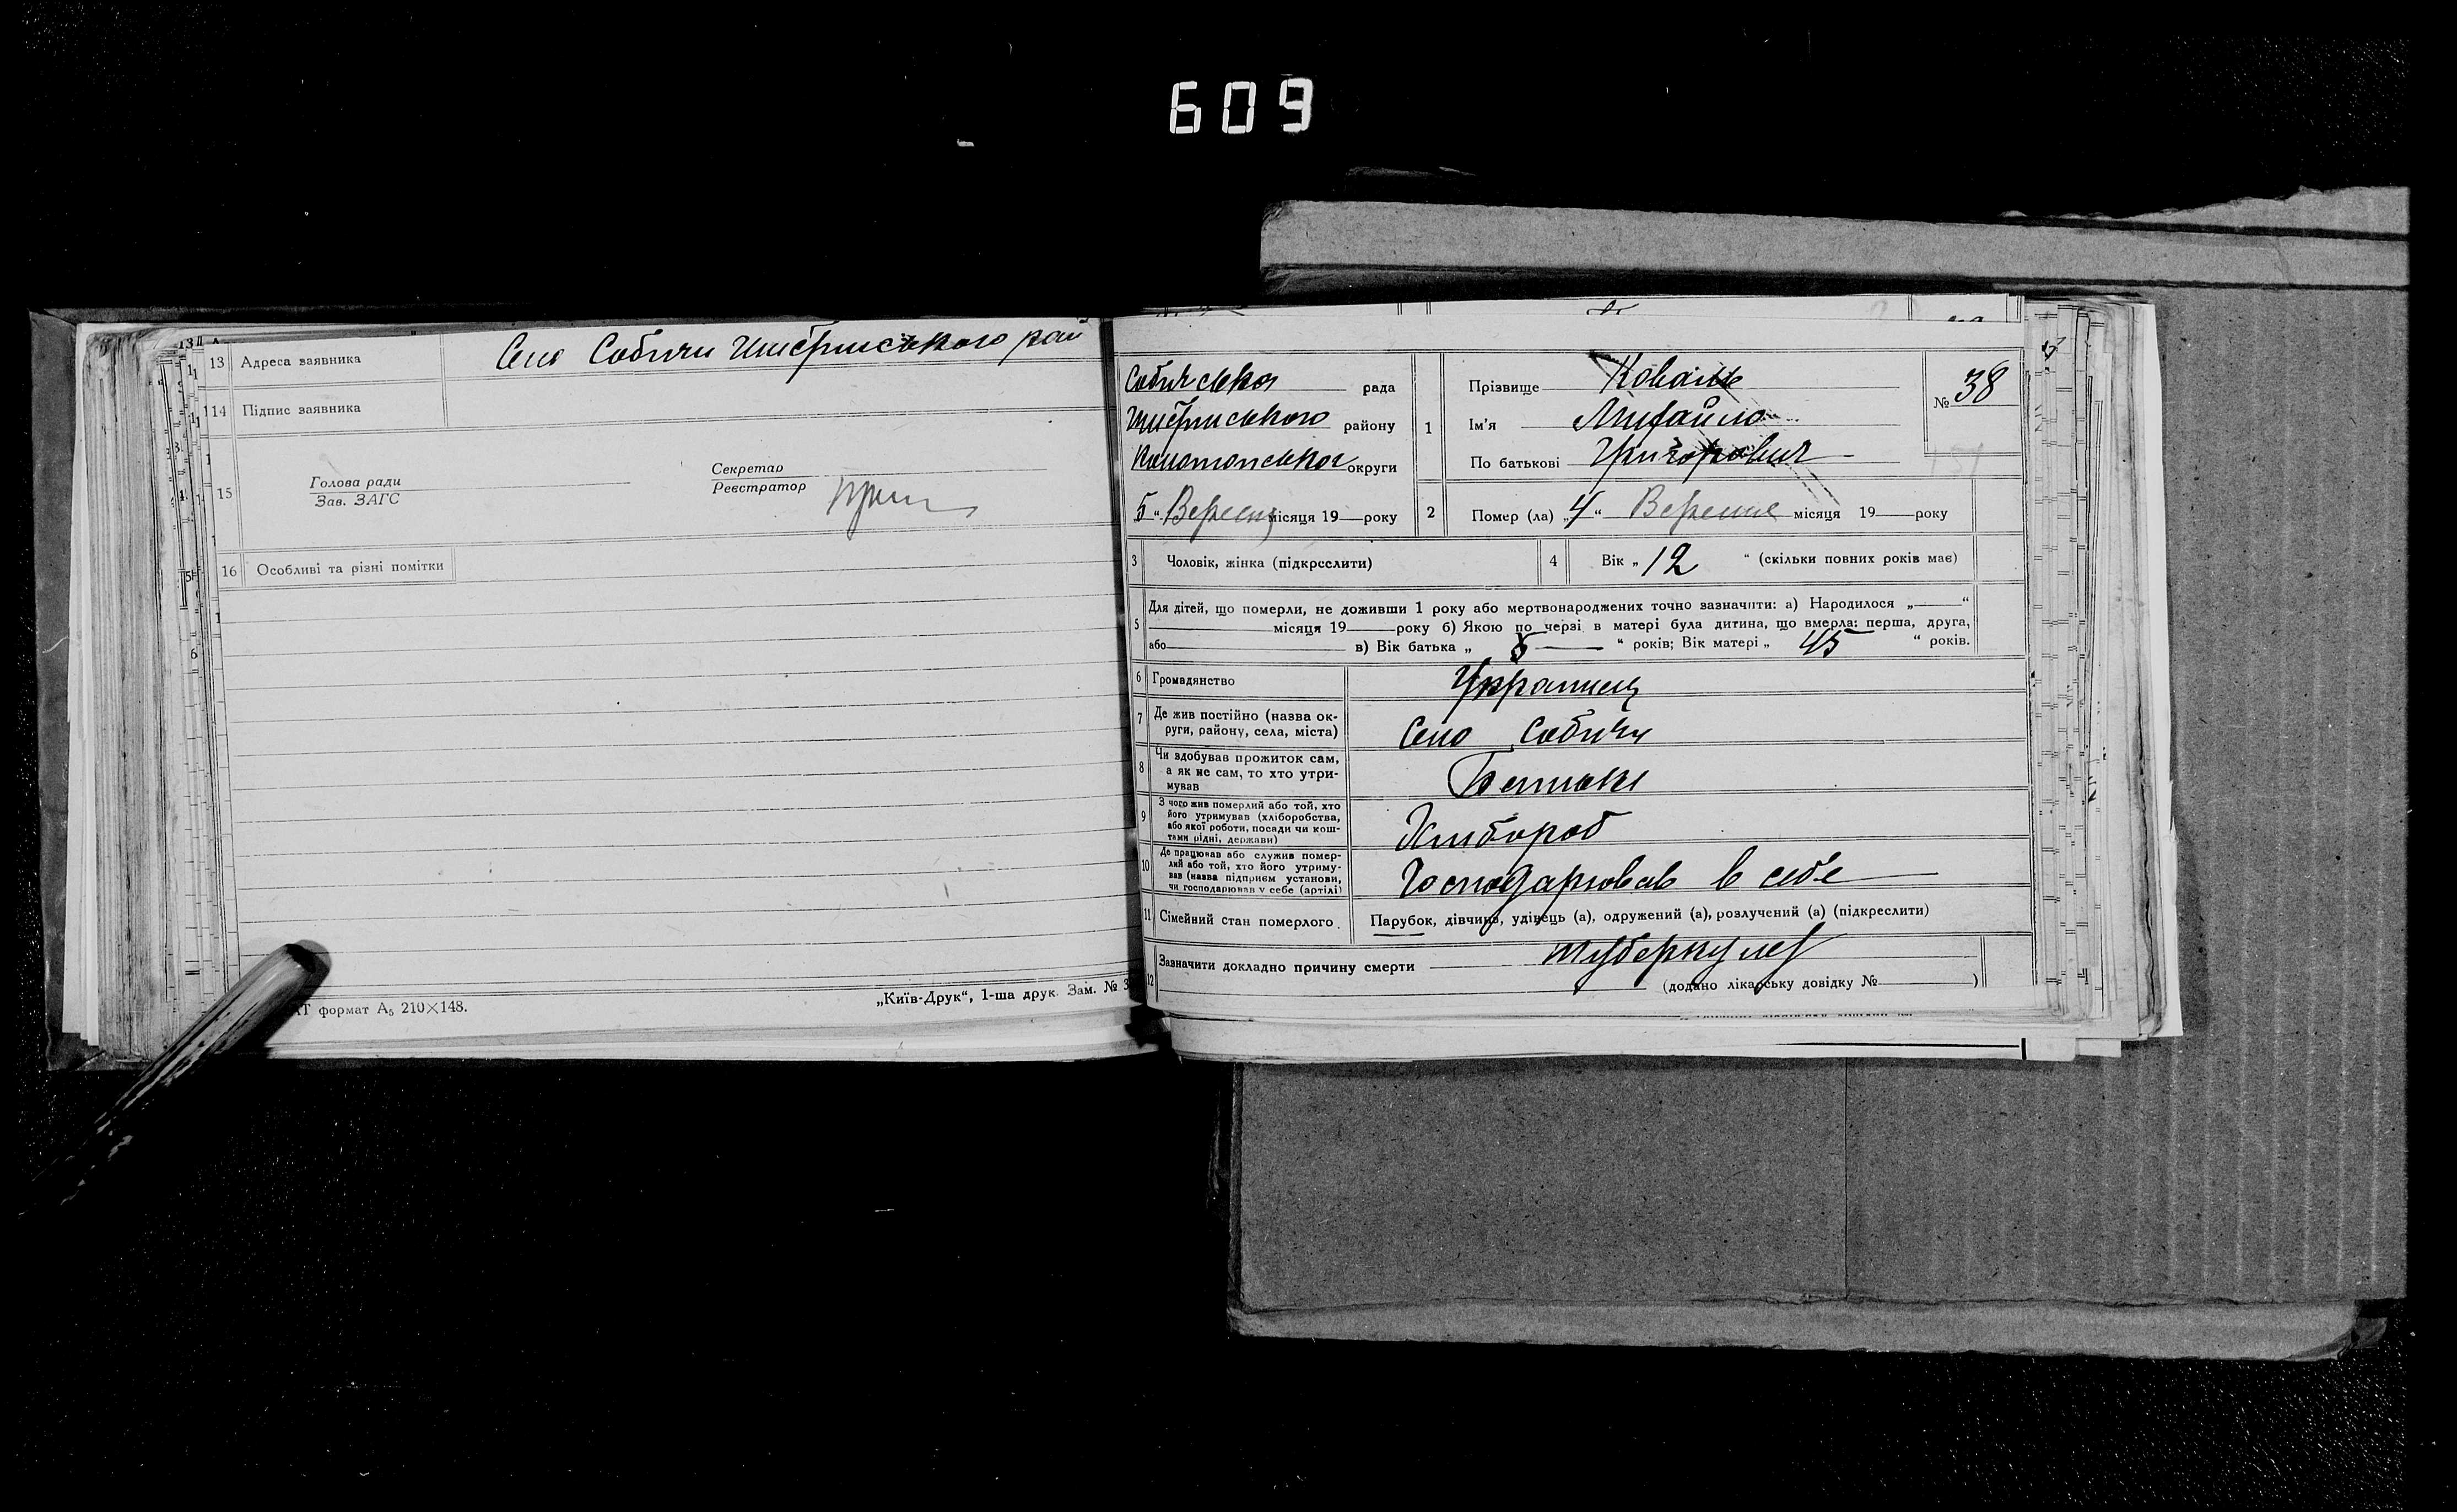 609
13 Адреса заявника Село Собичи Шибринського рай
14 Підпис заявника
15 Голова ради
Зав. ЗАГС
Секретар
Реєстратор
16 Особливі та різні помітки
формат А5 210×148.
„Київ-Друк“, 1-ша друк. Зам. № 3
Собичська рада
району
Конотопської округи
„5“ Вересня місяця 19 року
1 Прізвище Коваль
Ім'я Михайло
По батькові Григорович
№ 38
2 Помер (ла) „4“ Вересня місяця 19 року
3 Чоловік, жінка (підкреслити)
4 Вік „12“ (скільки повних років має)
5 Для дітей, що померли, не доживши 1 року або мертвонароджених точно зазначити: а) Народилося „ “
місяця 19 року б) Якою по черзі в матері була дитина, що вмерла: перша, друга,
або в) Вік батька „ “ років; Вік матері „ 45 “ років.
6 Громадянство Украинец
7 Де жив постійно (назва ок-
руги, району, села, міста) Село Собичи
8 Чи здобував прожиток сам,
а як не сам, то хто утри-
мував Батьки
9 З чого жив померлий або той, хто
його утримував (хліборобства,
або якої роботи, посади чи кош-
тами рідні, держави) Хлібороб
10 Де працював або служив помер-
лий або той, хто його утриму-
вав (назва підприєм установи,
чи господарював у себе (артілі) Господарював в себе
11 Сімейний стан померлого. Парубок, дівчина, удівець (а), одружений (а), розлучений (а) (підкреслити)
12 Зазначити докладно причину смерти туберкулез
(додано лікарську довідку № )